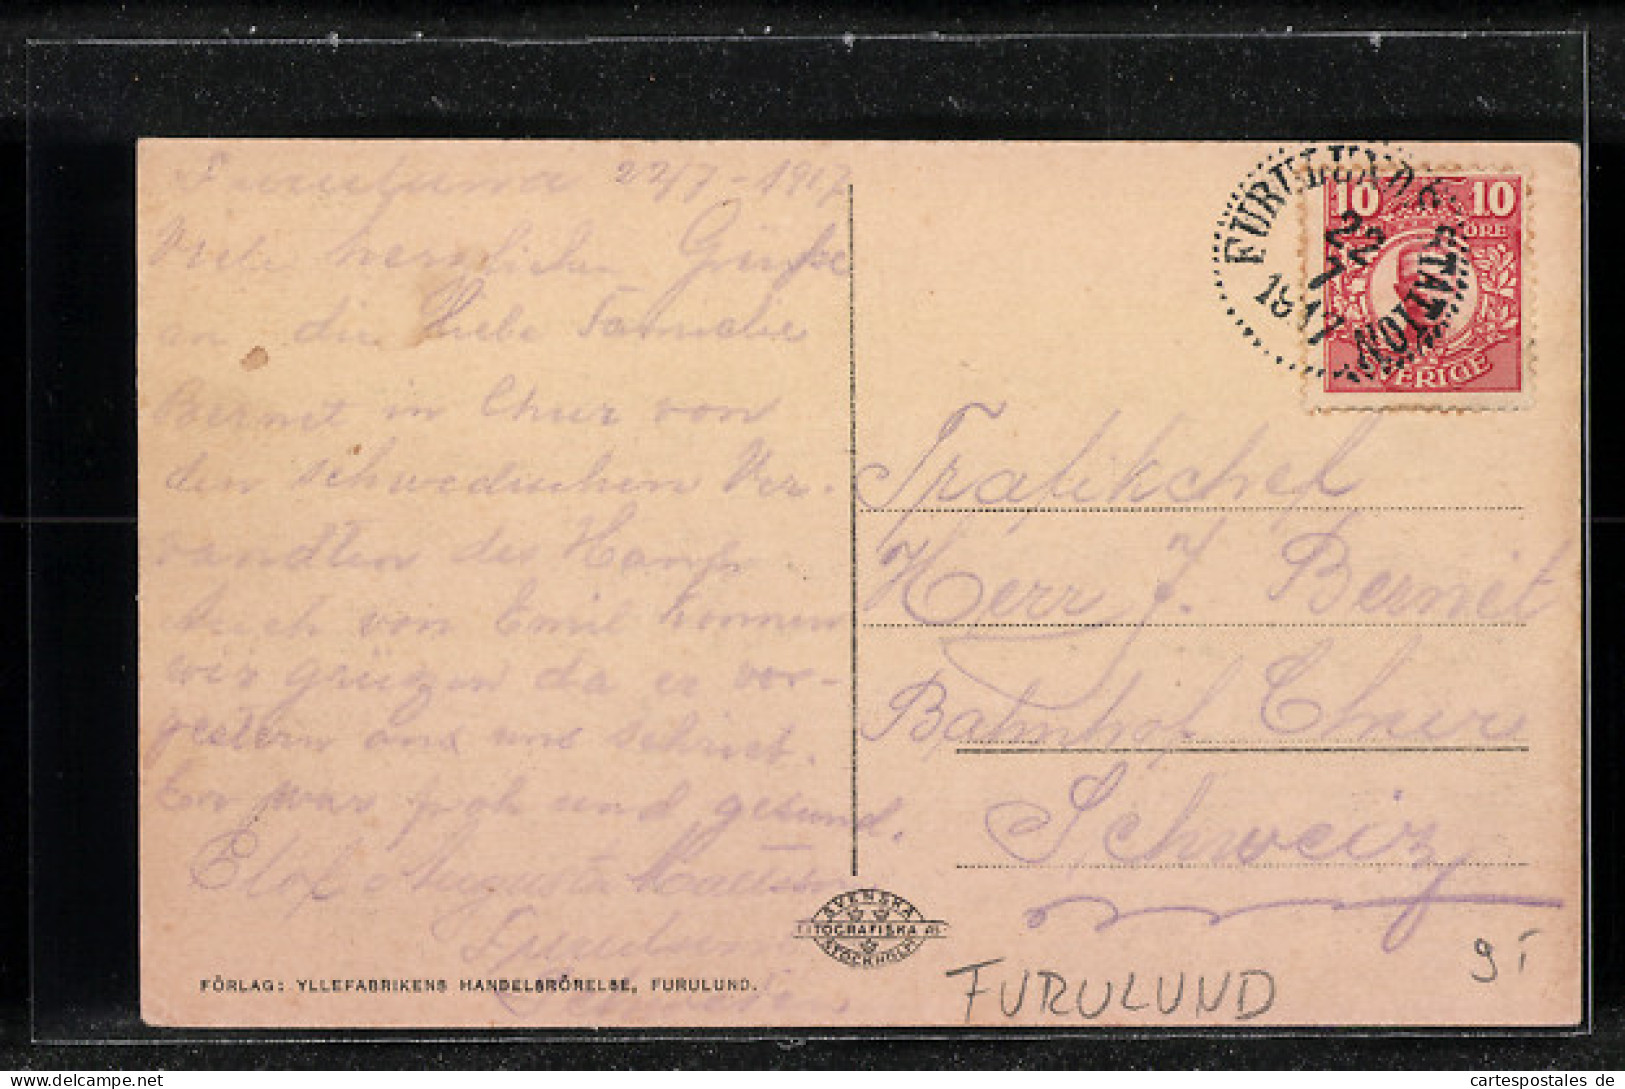 Furulund 22/7-1917
Viele herzlichen Grüße
an die Liebe Familie
Bernet in Chur von
den schwedischen Ver-
wandten des Hans
Auch von Emil konnen
wir grüzen da er vor-
gestern ans uns schriet.
Er war froh und gesund.
Elof o Augusta Mattsson
Furulund
FÖRLAG: YLLEFABRIKENS HANDELSRÖRELSE, FURULUND.
SVENSKA
LITOGRAFISKA AB.
STOCKHOLM
FURULUNDS STATION
22
7
1917
10 10
ÖRE
SVERIGE
Trafikchef
Herr J. Bernet
Bahnhof Chur
Schweiz
FURULUND
cartespostales de
www.delcampe.net